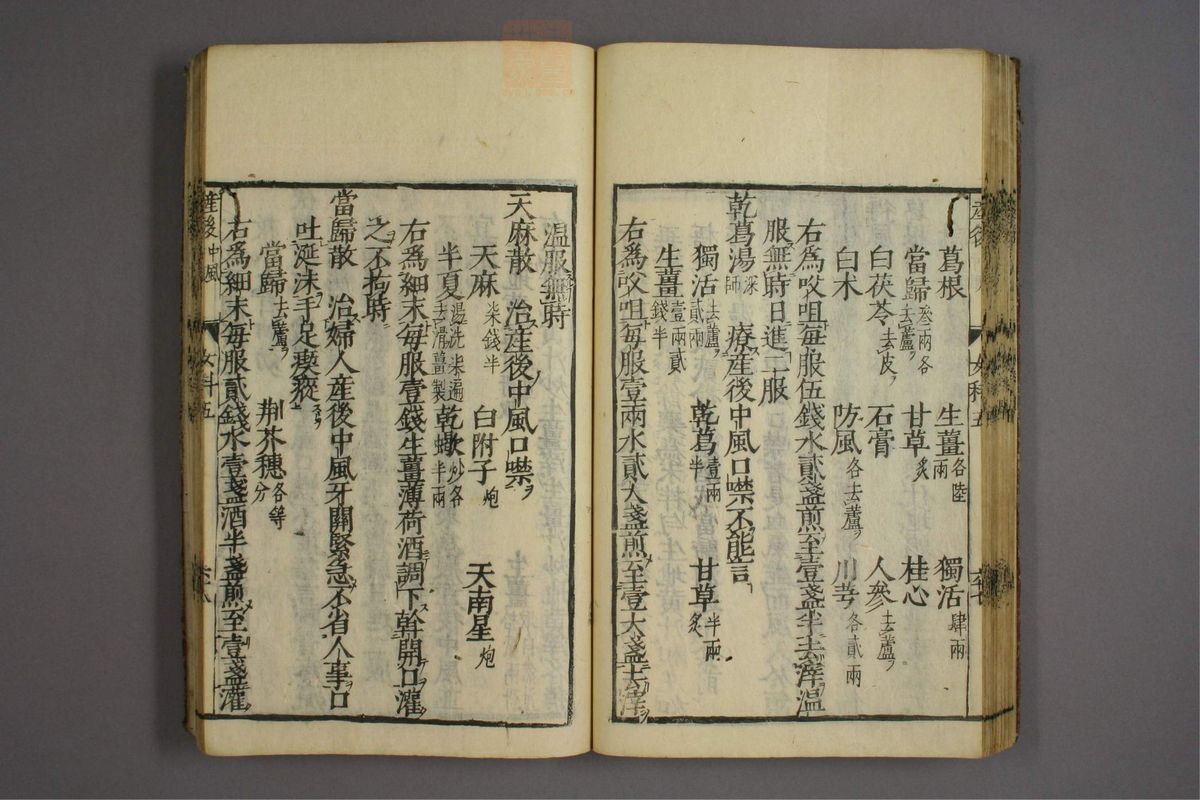 葛根 生薑各陸兩 獨活肆兩
當歸叄兩各去蘆 甘草炙 桂心
白茯苓去皮 石膏 人參去蘆
白朮 防風各去蘆 川芎各貳兩
右爲㕮咀每服伍錢水貳盞煎至壹盞半去滓溫
服無時日進二服
乾葛湯深師 療産後中風口噤不能言
獨活去蘆貳兩 乾葛壹兩半 甘草炙半兩
生薑壹兩貳錢半
右爲㕮咀每服壹兩水貳大盞煎至壹大盞去滓
産後 女科五
溫服無時
天麻散 治産後中風口噤
天麻柒錢半 白附子炮 天南星炮
半夏湯洗柒遍去滑薑製 乾蝎炒各半兩
右爲細末每服壹錢生薑薄荷酒調下斡開口灌
之不拘時
當歸散 治婦人産後中風牙關緊急不省人事口
吐涎沫手足瘈瘲
當歸去蘆 荆芥穗各等分
右爲細末每服貳錢水壹盞酒半盞煎至壹盞灌
産後中風 女科五 六八